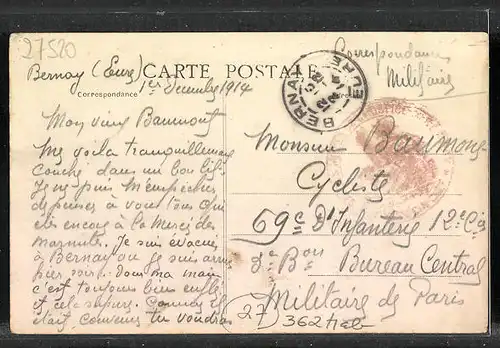 27520
Bernay (Eure)
CARTE POSTALE
Correspondance
Militaire
Correspondance
1er Décembre 1914
BERNAY
EURE
Mon vieux Baumont
Me voila tranquillement
couché, dans un bon lit
Je ne puis m'empêcher
de penser à vous tous qui
êtes encore à la Merci des
Marmites. Je suis évacué
à Bernay ou je suis arrivé
hier soir. Ma main
c'est toujours bien enflé
et cela suppure. Comme il
était convenu tu voudras
Monsieur Baumont
Cycliste
69e D'Infanterie 12e Cie
3e Bon Bureau Central
Militaire de Paris
27